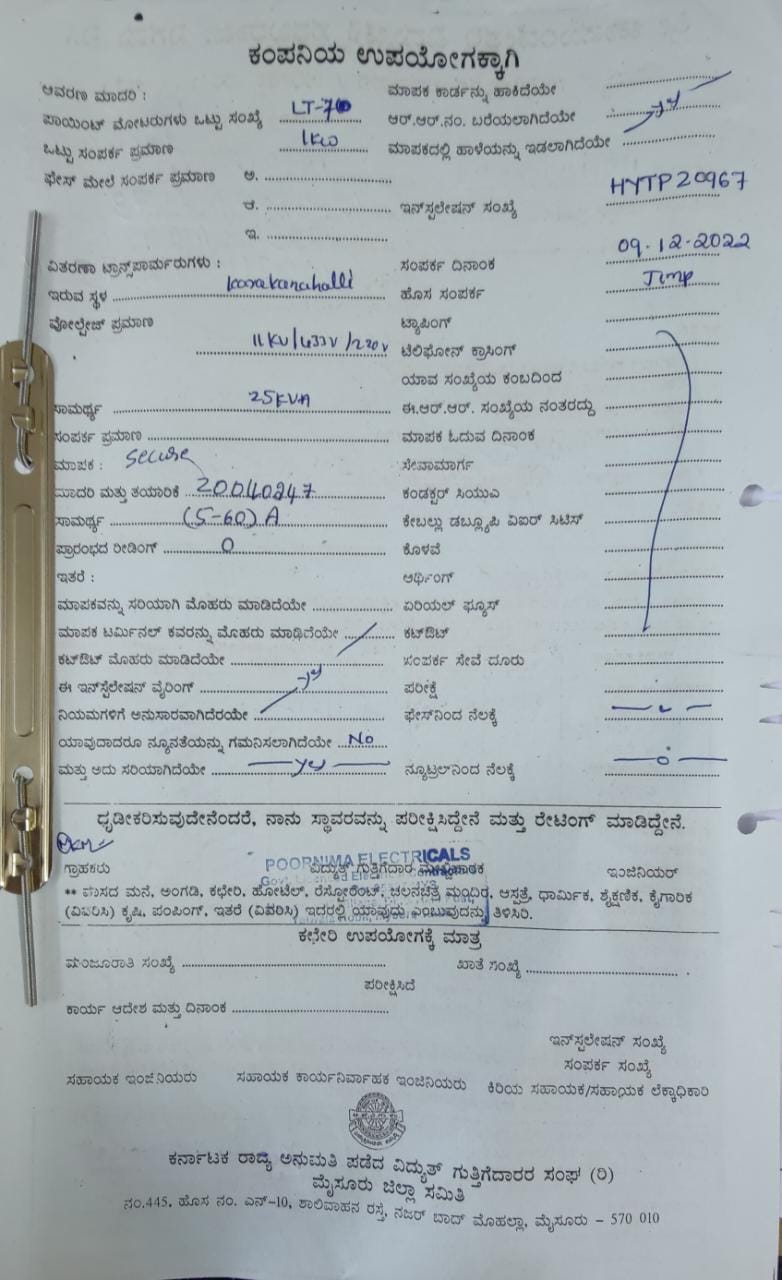 ಕಂಪನಿಯ ಉಪಯೋಗಕ್ಕಾಗಿ
ಆವರಣ ಮಾದರಿ :
ಮಾಪಕ ಕಾರ್ಡನ್ನು ಹಾಕಿದೆಯೇ
ಪಾಯಿಂಟ್ ಮೋಟರುಗಳು ಒಟ್ಟು ಸಂಖ್ಯೆ LT-7
ಆರ್.ಆರ್.ನಂ. ಬರೆಯಲಾಗಿದೆಯೇ
ಒಟ್ಟು ಸಂಪರ್ಕ ಪ್ರಮಾಣ 1KW
ಮಾಪಕದಲ್ಲಿ ಹಾಳೆಯನ್ನು ಇಡಲಾಗಿದೆಯೇ
ಫೇಸ್ ಮೇಲೆ ಸಂಪರ್ಕ ಪ್ರಮಾಣ ಅ.
ಆ.
ಇನ್‌ಸ್ಟಲೇಷನ್ ಸಂಖ್ಯೆ HYTP20967
ಇ.
ವಿತರಣಾ ಟ್ರಾನ್ಸ್‌ಫಾರ್ಮರುಗಳು :
ಸಂಪರ್ಕ ದಿನಾಂಕ 09-12-2022
ಇರುವ ಸ್ಥಳ koorakanahalli
ಹೊಸ ಸಂಪರ್ಕ Temp
ವೋಲ್ಟೇಜ್ ಪ್ರಮಾಣ
ಟ್ಯಾಪಿಂಗ್
11KV/433V/230V
ಟೆಲಿಫೋನ್ ಕ್ರಾಸಿಂಗ್
ಯಾವ ಸಂಖ್ಯೆಯ ಕಂಬದಿಂದ
ಸಾಮರ್ಥ್ಯ 25KVA
ಈ.ಆರ್.ಆರ್. ಸಂಖ್ಯೆಯ ನಂತರದ್ದು
ಸಂಪರ್ಕ ಪ್ರಮಾಣ
ಮಾಪಕ ಓದುವ ದಿನಾಂಕ
ಮಾಪಕ : Secure
ಸೇವಾಮಾರ್ಗ
ಮಾದರಿ ಮತ್ತು ತಯಾರಿಕೆ 20040247
ಕಂಡಕ್ಟರ್ ಸಿಯುಎ
ಸಾಮರ್ಥ್ಯ (5-60)A
ಕೇಬಲ್ಲು ಡಬ್ಲ್ಯೂಪಿ ವಿಐರ್ ಸಿಟಿಸ್
ಪ್ರಾರಂಭದ ರೀಡಿಂಗ್ 0
ಕೊಳವೆ
ಇತರೆ :
ಅರ್ಥಿಂಗ್
ಮಾಪಕವನ್ನು ಸರಿಯಾಗಿ ಮೊಹರು ಮಾಡಿದೆಯೇ
ಏರಿಯಲ್ ಫ್ಯೂಸ್
ಮಾಪಕ ಟರ್ಮಿನಲ್ ಕವರನ್ನು ಮೊಹರು ಮಾಡಿದೆಯೇ
ಕಟ್‌ಔಟ್
ಕಟ್‌ಔಟ್ ಮೊಹರು ಮಾಡಿದೆಯೇ
ಸಂಪರ್ಕ ಸೇವೆ ದೂರು
ಈ ಇನ್‌ಸ್ಟೆಲೇಷನ್ ವೈರಿಂಗ್
ಪರೀಕ್ಷೆ
ನಿಯಮಗಳಿಗೆ ಅನುಸಾರವಾಗಿದೆರಯೇ
ಫೇಸ್‌ನಿಂದ ನೆಲಕ್ಕೆ
ಯಾವುದಾದರೂ ನ್ಯೂನತೆಯನ್ನು ಗಮನಿಸಲಾಗಿದೆಯೇ No
ಮತ್ತು ಅದು ಸರಿಯಾಗಿದೆಯೇ yes
ನ್ಯೂಟ್ರಲ್‌ನಿಂದ ನೆಲಕ್ಕೆ
ಧೃಡೀಕರಿಸುವುದೇನೆಂದರೆ, ನಾನು ಸ್ಥಾವರವನ್ನು ಪರೀಕ್ಷಿಸಿದ್ದೇನೆ ಮತ್ತು ರೇಟಿಂಗ್ ಮಾಡಿದ್ದೇನೆ.
POORNIMA ELECTRICALS
ಗ್ರಾಹಕರು
ವಿದ್ಯುತ್ ಗುತ್ತಿಗೆದಾರ
ಇಂಜಿನಿಯರ್
** ವಾಸದ ಮನೆ, ಅಂಗಡಿ, ಕಛೇರಿ, ಹೋಟೆಲ್, ರೆಸ್ಟೋರೆಂಟ್, ಚಲನಚಿತ್ರ ಮಂದಿರ, ಆಸ್ಪತ್ರೆ, ಧಾರ್ಮಿಕ, ಶೈಕ್ಷಣಿಕ, ಕೈಗಾರಿಕ
(ವಿವರಿಸಿ) ಕೃಷಿ, ಪಂಪಿಂಗ್, ಇತರೆ (ವಿವರಿಸಿ) ಇದರಲ್ಲಿ ಯಾವುದು ಎಂಬುವುದನ್ನು ತಿಳಿಸಿರಿ.
ಕಛೇರಿ ಉಪಯೋಗಕ್ಕೆ ಮಾತ್ರ
ಮಂಜೂರಾತಿ ಸಂಖ್ಯೆ
ಖಾತೆ ಸಂಖ್ಯೆ
ಪರೀಕ್ಷಿಸಿದೆ
ಕಾರ್ಯ ಆದೇಶ ಮತ್ತು ದಿನಾಂಕ
ಇನ್‌ಸ್ಟಲೇಷನ್ ಸಂಖ್ಯೆ
ಸಂಪರ್ಕ ಸಂಖ್ಯೆ
ಸಹಾಯಕ ಇಂಜಿನಿಯರು
ಸಹಾಯಕ ಕಾರ್ಯನಿರ್ವಾಹಕ ಇಂಜಿನಿಯರು
ಕಿರಿಯ ಸಹಾಯಕ/ಸಹಾಯಕ ಲೆಕ್ಕಾಧಿಕಾರಿ
ಕರ್ನಾಟಕ ರಾಜ್ಯ ಅನುಮತಿ ಪಡೆದ ವಿದ್ಯುತ್ ಗುತ್ತಿಗೆದಾರರ ಸಂಘ (ರಿ)
ಮೈಸೂರು ಜಿಲ್ಲಾ ಸಮಿತಿ
ನಂ.445, ಹೊಸ ನಂ. ಎನ್-10, ಶಾಲಿವಾಹನ ರಸ್ತೆ, ನಜರ್ ಬಾದ್ ಮೊಹಲ್ಲಾ, ಮೈಸೂರು - 570 010